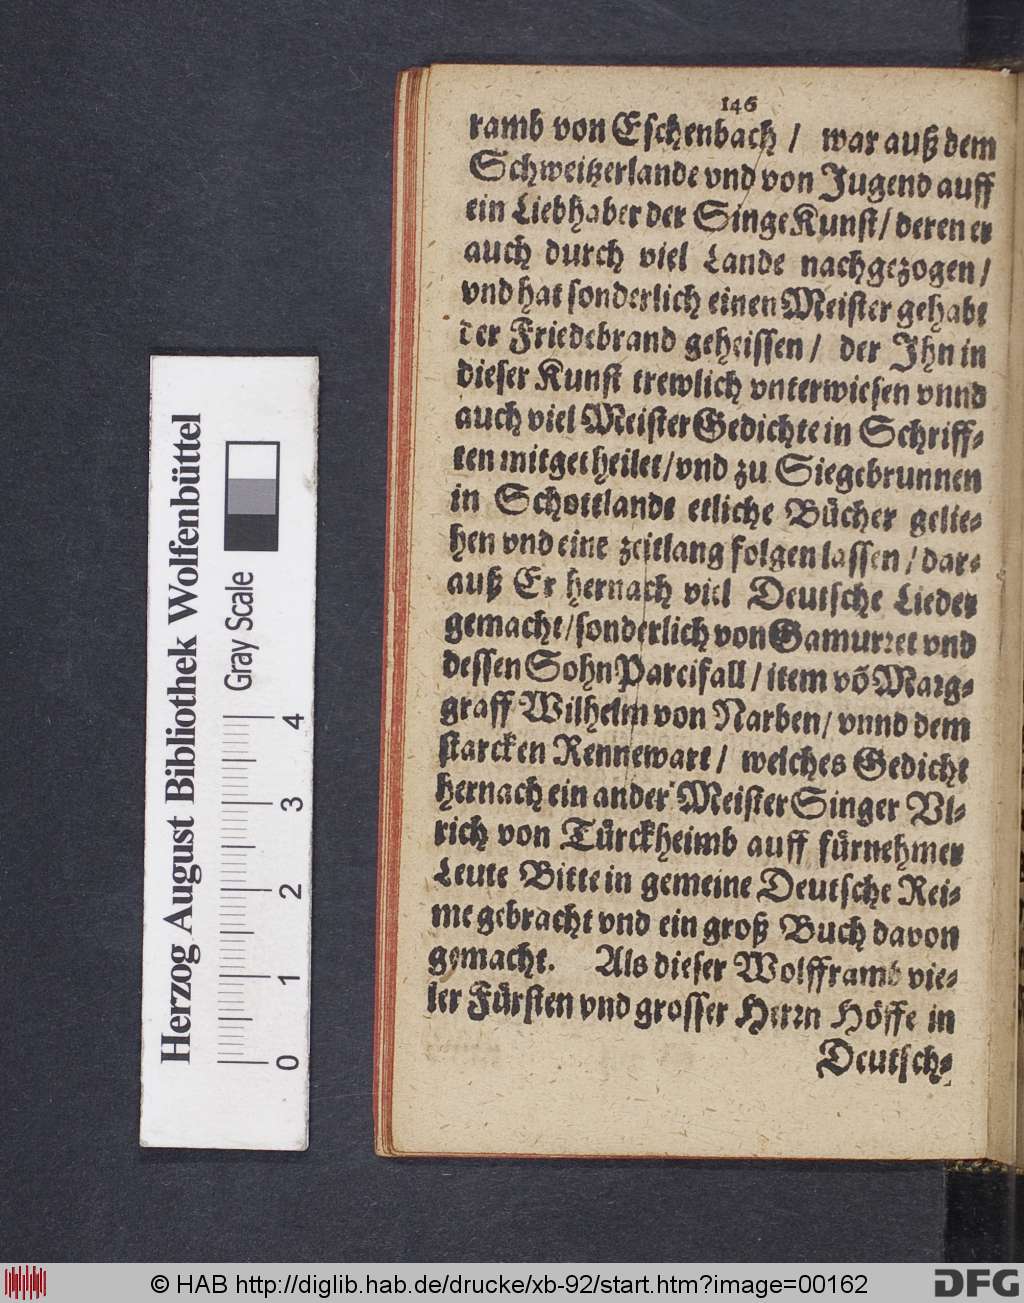 146
ramb von Eschenbach / war auß dem
Schweitzerlande vnd von Jugend auff
ein Liebhaber der Singe Kunst / deren er
auch durch viel Lande nachgezogen /
vnd hat sonderlich einen Meister gehabt
der Friedebrand geheissen / der Ihn in
dieser Kunst trewlich vnterwiesen vnnd
auch viel Meister Gedichte in Schriff-
ten mitgetheilet / vnd zu Siegebrunnen
in Schottlande etliche Bücher gelie-
hen vnd eine zeitlang folgen lassen / dar-
auß Er hernach viel Deutsche Lieder
gemacht / sonderlich von Gamurret vnd
dessen Sohn Parcifall / item võ Marg-
graff Wilhelm von Narben / vnnd dem
starcken Rennewart / welches Gedicht
hernach ein ander Meister Singer Vl-
rich von Türckheimb auff fürnehmer
Leute Bitte in gemeine Deutsche Rei-
me gebracht vnd ein groß Buch davon
gemacht. Als dieser Wolfframb vie-
ler Fürsten vnd grosser Herrn Höffe in
Deutsch-
Herzog August Bibliothek Wolfenbüttel
Gray Scale
0 1 2 3 4
© HAB http://diglib.hab.de/drucke/xb-92/start.htm?image=00162
DFG